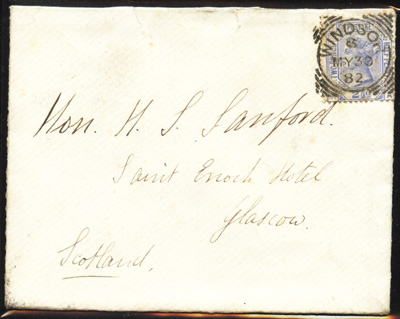 WINDSOR
8
MY 30
82
Hon. H. S. Sanford.
Saint Enoch Hotel
Glascow.
Scotland.